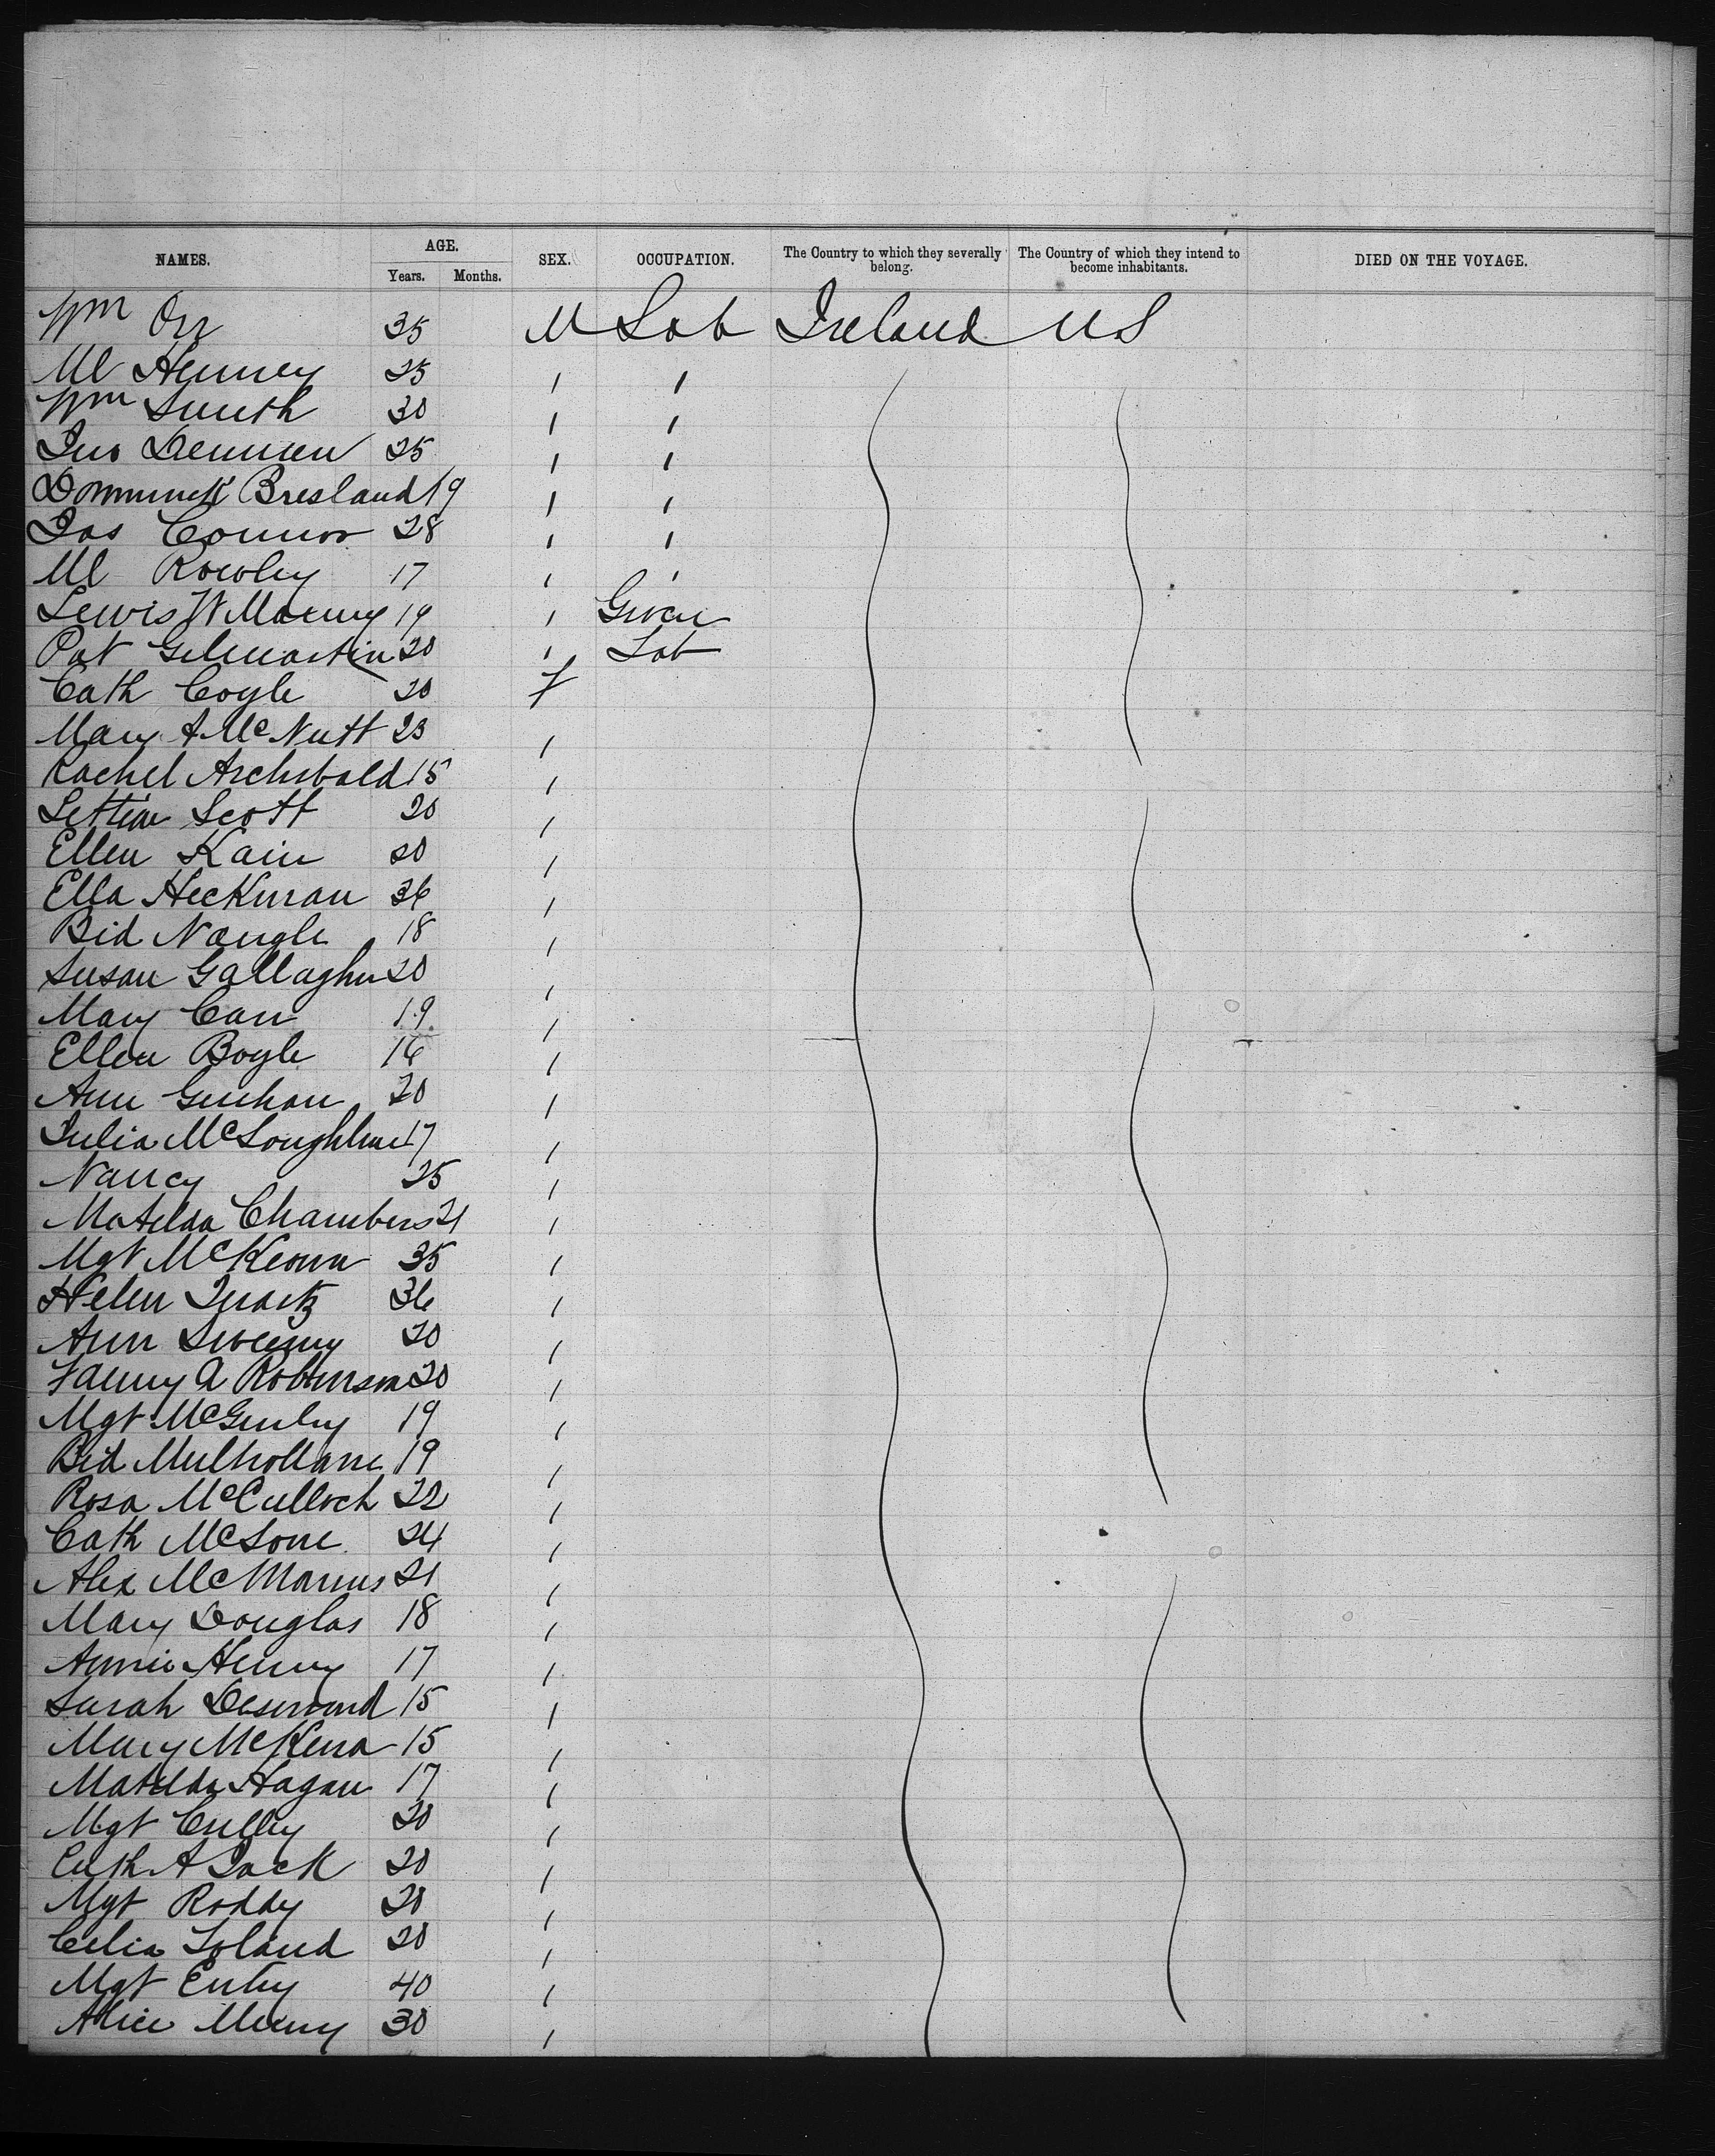 NAMES. AGE. SEX. OCCUPATION. The Country to which they severally belong. The Country of which they intend to become inhabitants. DIED ON THE VOYAGE.
Years. Months.
Wm Orr 35 M Lab Ireland US
Ml 25 ' '
Wm Smith 30 ' '
Jno 25 ' '
Dominick Bresland 19 ' '
Jas Connor 28 ' '
Ml Rowley 17 ' '
Lewis W 19 ' Grocer
Pat Gilmartin 20 ' Lab
Cath Coyle 20 F
Mary A McNutt 23 '
Rachel Archibald 15 '
Lettie Scott 20 '
Ellen Kain 20 '
Ella Heckman 36 '
Bid Nangle 18 '
Susan Gallagher 20 '
Mary Carr 19 '
Ellen Boyle 16 '
Ann 20 '
Julia McLoughlin 17 '
Nancy 25 '
Matilda Chambers 21 '
Mgt McKeown 35 '
Helen 36 '
Ann Sweeny 20 '
Fanny A Robinson 20 '
Mgt McGinley 19 '
Bid 19 '
Rosa McCulloch 22 '
Cath McSone 24 '
Alex McManus 21 '
Mary Douglas 18 '
Annie Henry 17 '
Sarah Desmond 15 '
Mary McKena 15 '
Matilda Hagan 17 '
Mgt Culley 20 '
Cath A Jack 20 '
Mgt Roddy 20 '
Celia Toland 20 '
Mgt 40 '
Alice 30 '